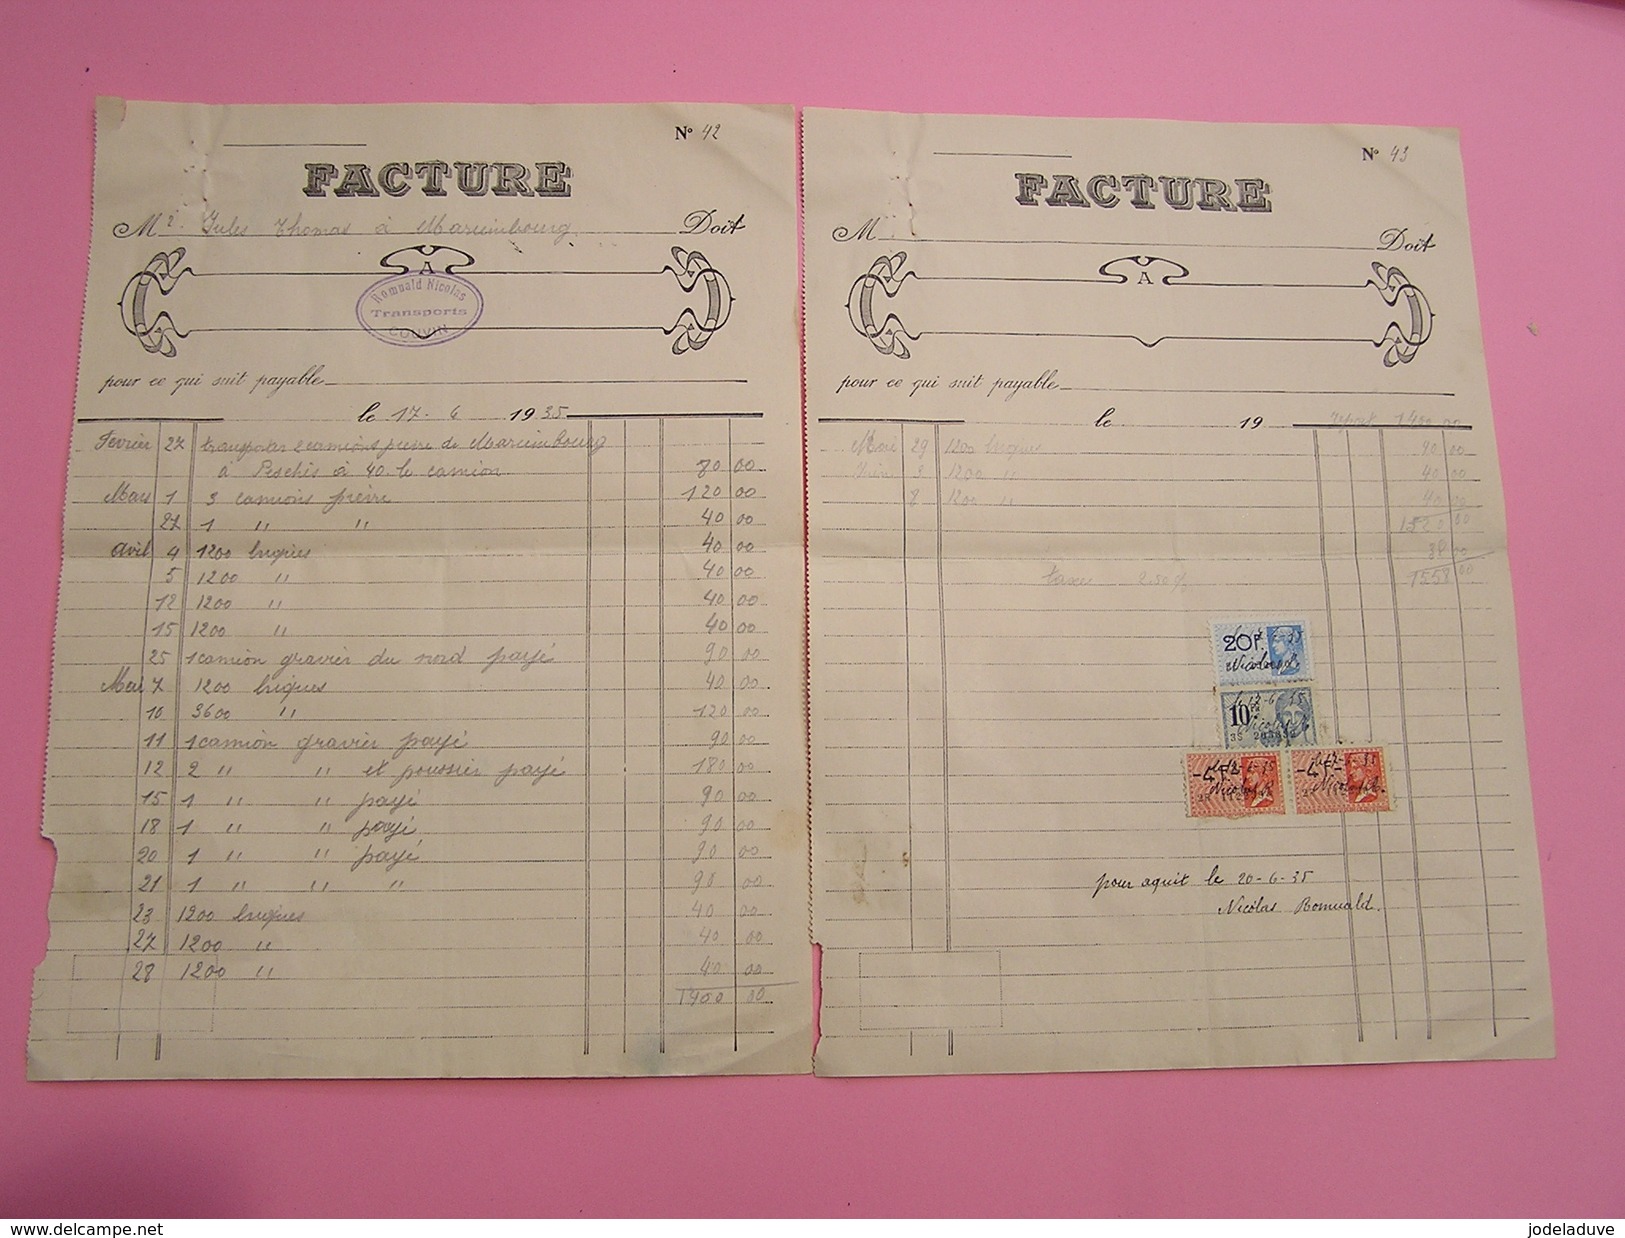 Nº 42
FACTURE
Mr. Jules Thomas à Mariembourg Doit
A
Romuald Nicolas
Transports
COUVIN
pour ce qui suit payable
le 17-6 1935
Fevrier 27 transporter 2 camions pierre de Mariembourg
à Pesches à 40 le camion 80 00
Mars 1 3 camions pierre 120 00
27 1 " " 40 00
Avril 4 1200 briques 40 00
5 1200 " 40 00
12 1200 " 40 00
15 1200 " 40 00
25 1 camion gravier du nord payé 90 00
Mai 7 1200 briques 40 00
10 3600 " 120 00
11 1 camion gravier payé 90 00
12 2 " " et poussier payé 180 00
15 1 " " payé 90 00
18 1 " " payé 90 00
20 1 " " payé 90 00
21 1 " " " 90 00
23 1200 briques 40 00
27 1200 " 40 00
28 1200 " 40 00
1400 00
Nº 43
FACTURE
M Doit
A
pour ce qui suit payable
le 19
report 1400 00
Mai 29 1200 briques 40 00
Juin 3 1200 " 40 00
8 1200 " 40 00
1520 00
38 00
taxe 2.50 % 1558 00
20F.
le 17-6-35
Nicolas R.
10
le 17-6-35
Nicolas R.
-4F-
le 17-6-35
Nicolas R.
-4F-
le 17-6-35
Nicolas R.
pour aquit le 20-6-35
Nicolas Romuald.
www.delcampe.net
jodeladuve